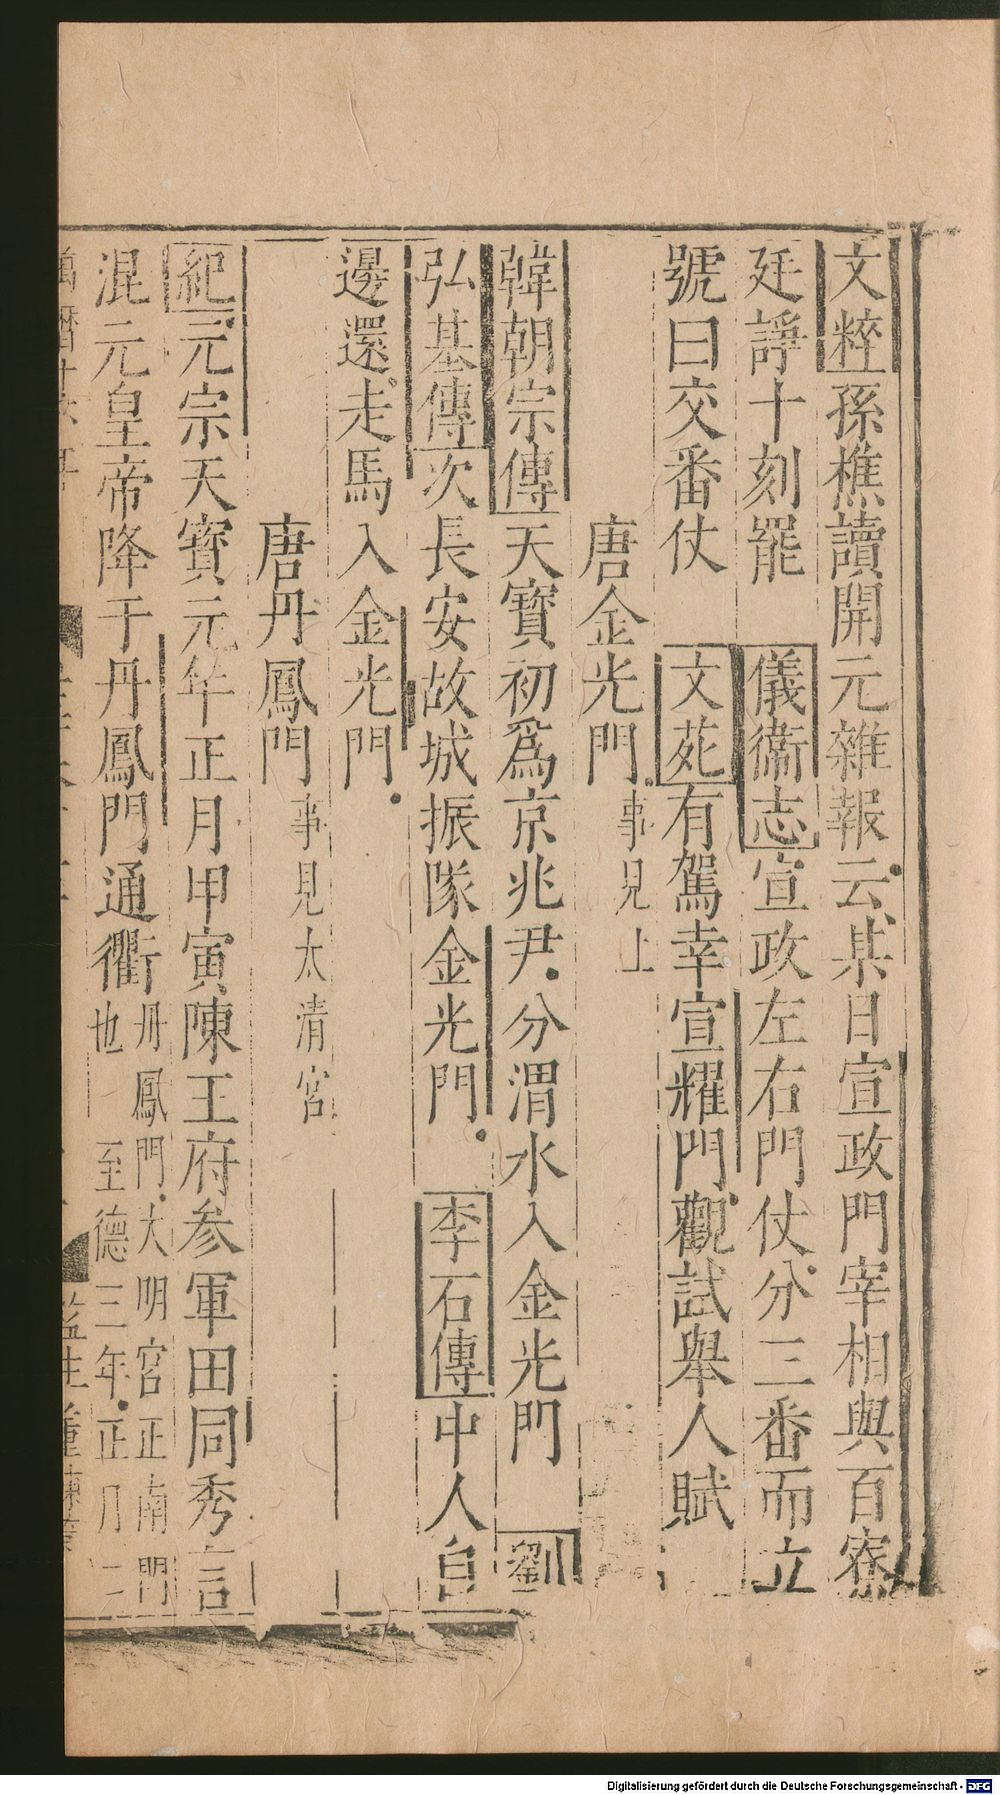 文粹孫樵讀開元雜報云某日宣政門宰相與百寮
廷諍十刻罷 儀衞志宣政左右門仗分三番而立
號曰交番仗 文苑有駕幸宣耀門觀試舉人賦
唐金光門事見上
韓朝宗傳天寶初爲京兆尹分渭水入金光門 劉
弘基傳次長安故城振隊金光門 李石傳中人自
邊還走馬入金光門
唐丹鳳門事見太清宮
紀元宗天寶元年正月甲寅陳王府參軍田同秀言
混元皇帝降于丹鳳門通衢丹鳳門大明宮正南門
也 至德三年正月
萬曆十六年
監生
Digitalisierung gefördert durch die Deutsche Forschungsgemeinschaft - DFG